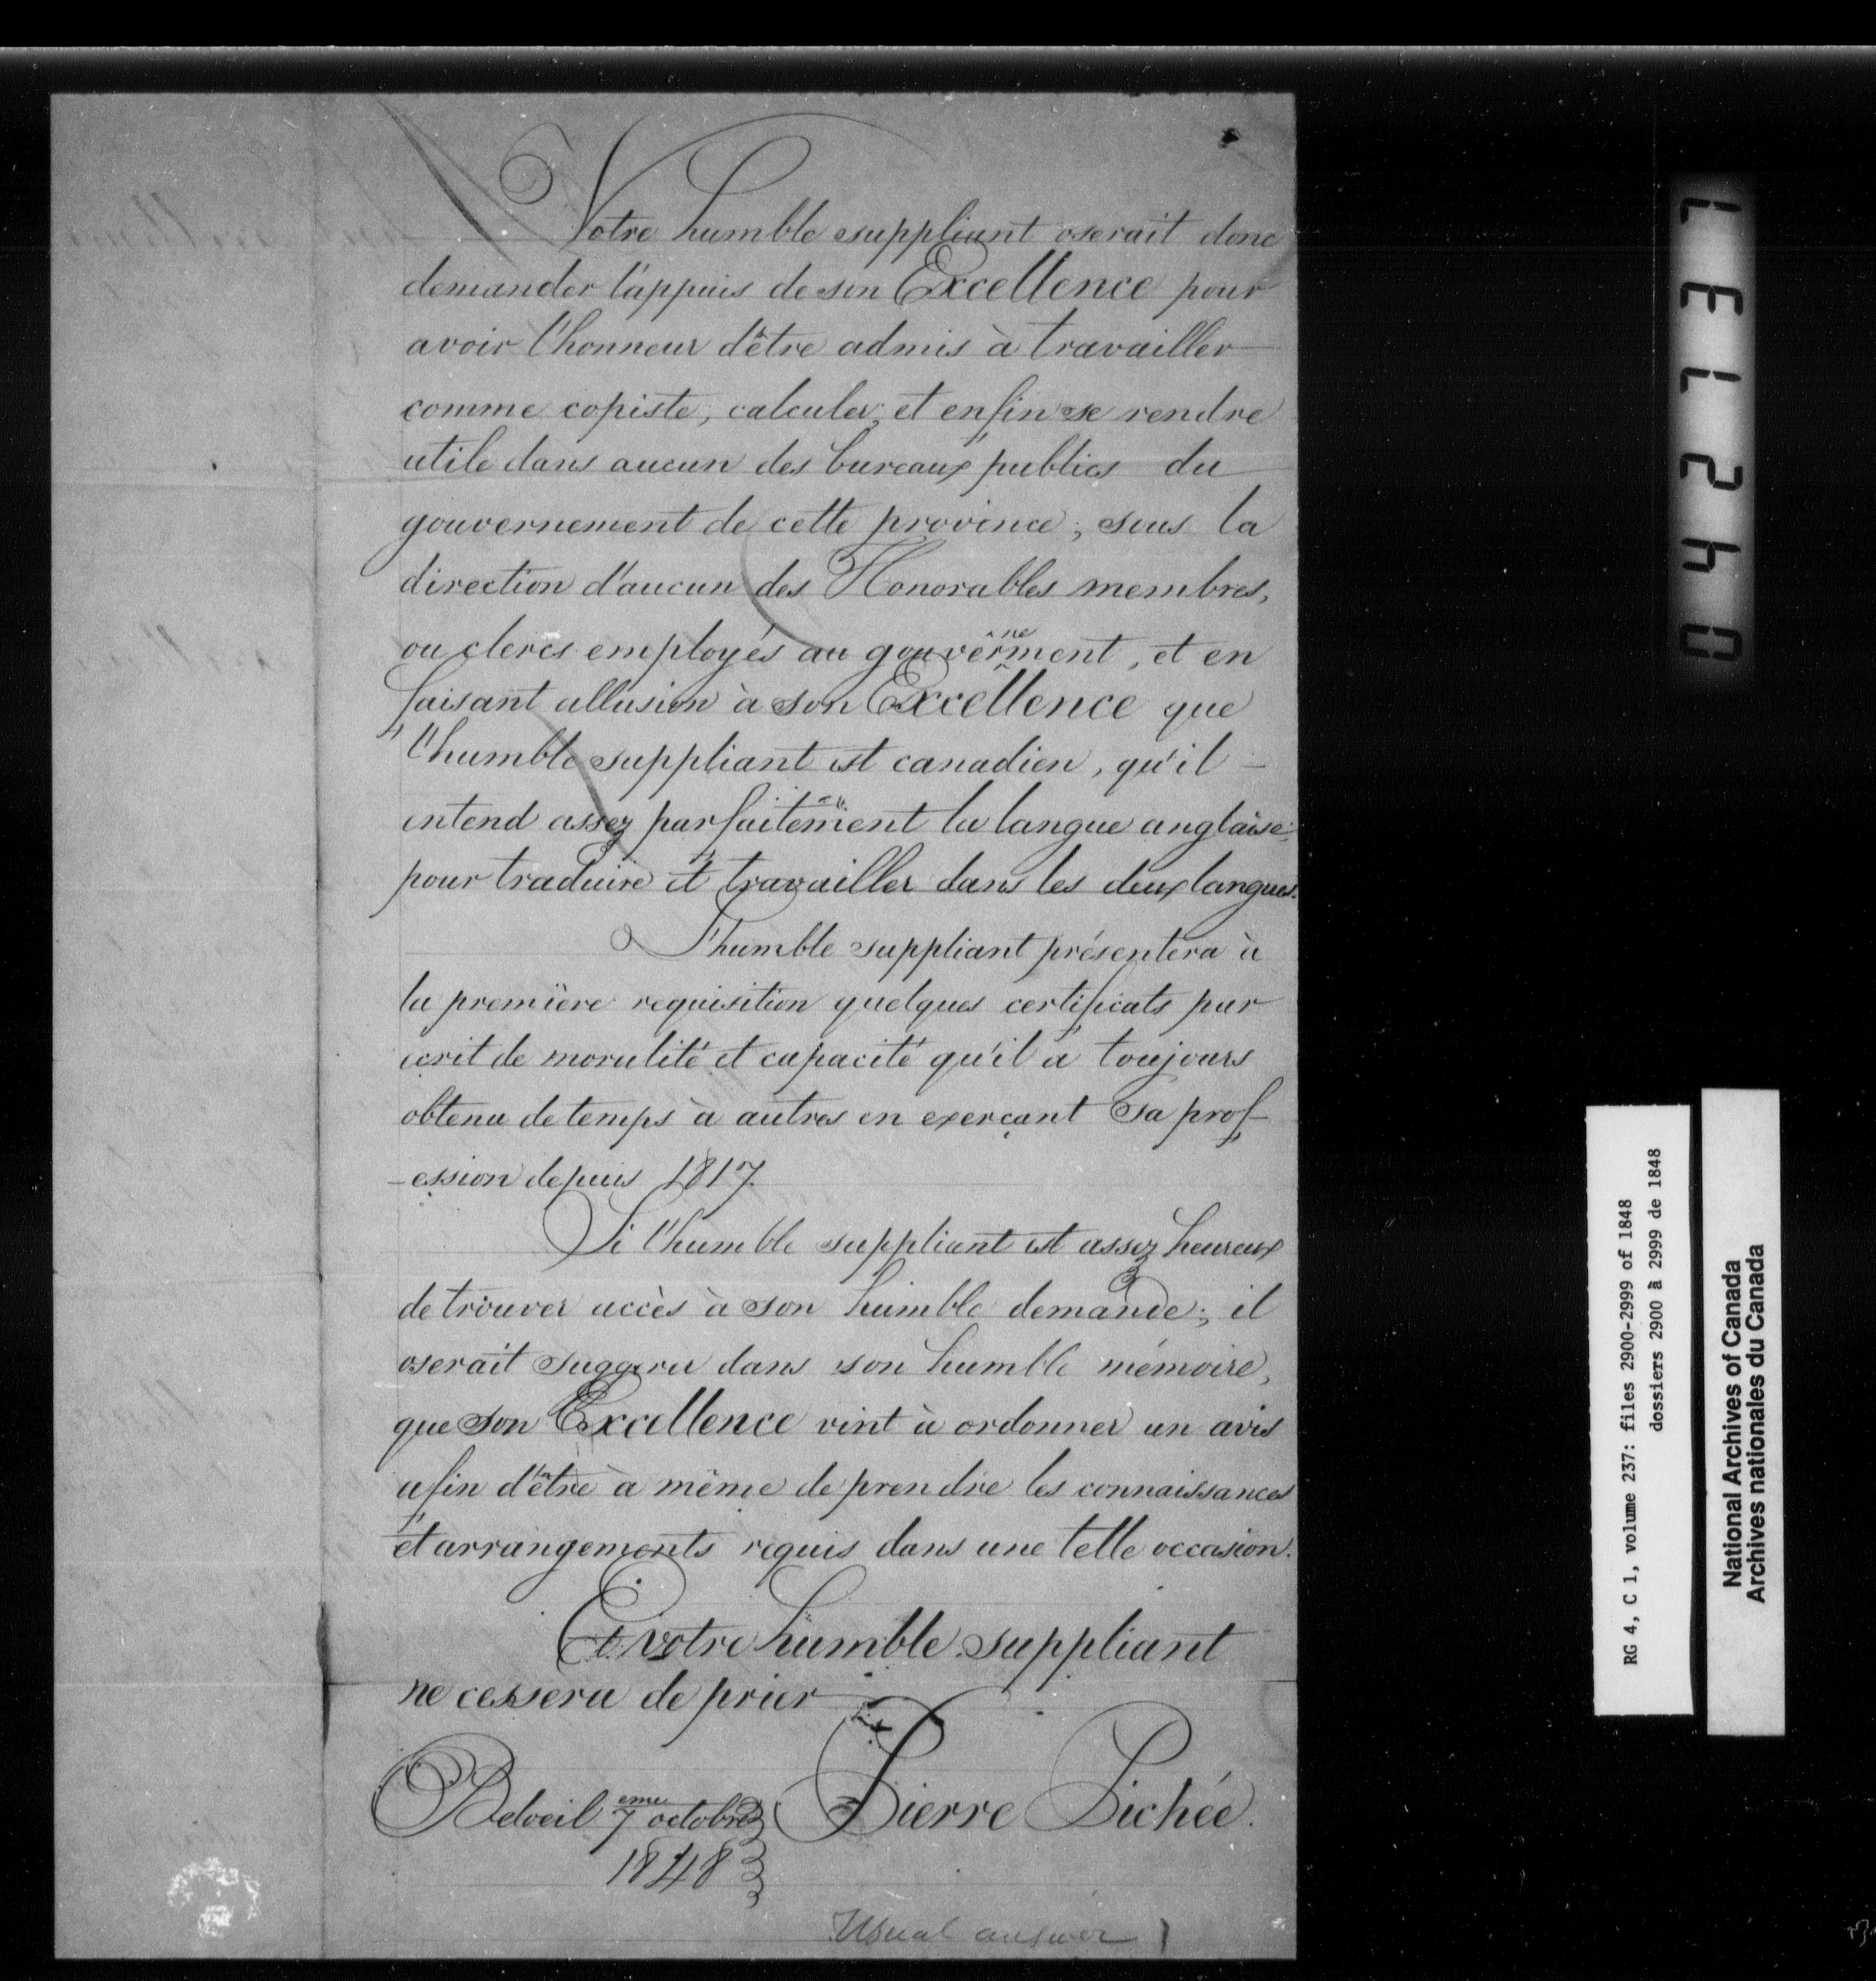 Votre humble suppliant oserait donc
demander l'appuis de son Excellence pour
avoir l'honneur d'être admis à travailler
comme copiste, calculer, et enfin se rendre
utile dans aucun des bureaux publics du
gouvernement de cette province; sous la
direction d'aucun des Honorables membres,
ou clercs employés au gouvernement, et en
faisant allusion à son Excellence que
l'humble suppliant est canadien, qu'il
entend assez parfaitement la langue anglaise,
pour traduire et travailler dans les deux langues.
L'humble suppliant présentera à
la première requisition quelques certificats par
écrit de moralité et capacité qu'il a toujours
obtenu de temps à autres en exerçant sa prof-
-ession depuis 1817.
Si l'humble suppliant est assez heureux
de trouver accès à son humble demande; il
oserait suggerer dans son humble mémoire,
que son Excellence vint à ordonner un avis
afin d'être à même de prendre les connaissances
et arrangements requis dans une telle occasion.
Et votre humble suppliant
ne cessera de prier
Beloeil 7 eme octobre Pierre Pichée.
1848
Usual answer
042137
RG 4, C 1, volume 237: files 2900-2999 of 1848
dossiers 2900 à 2999 de 1848
National Archives of Canada
Archives nationales du Canada